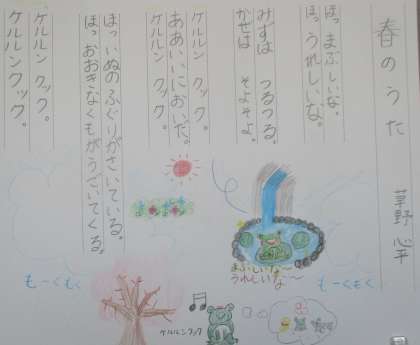 春のうた
草野 心平
ほっ まぶしいな。
ほっ うれしいな。
みずは つるつる。
かぜは そよそよ。
ケルルン クック。
ああいいにおいだ。
ケルルン クック。
ほっ いぬのふぐりがさいている。
ほっ おおきなくもがうごいてくる。
ケルルン クック。
ケルルン クック。
まぶしいな〜
うれしいな〜
もーくもく
もーくもく
ケルルンクック